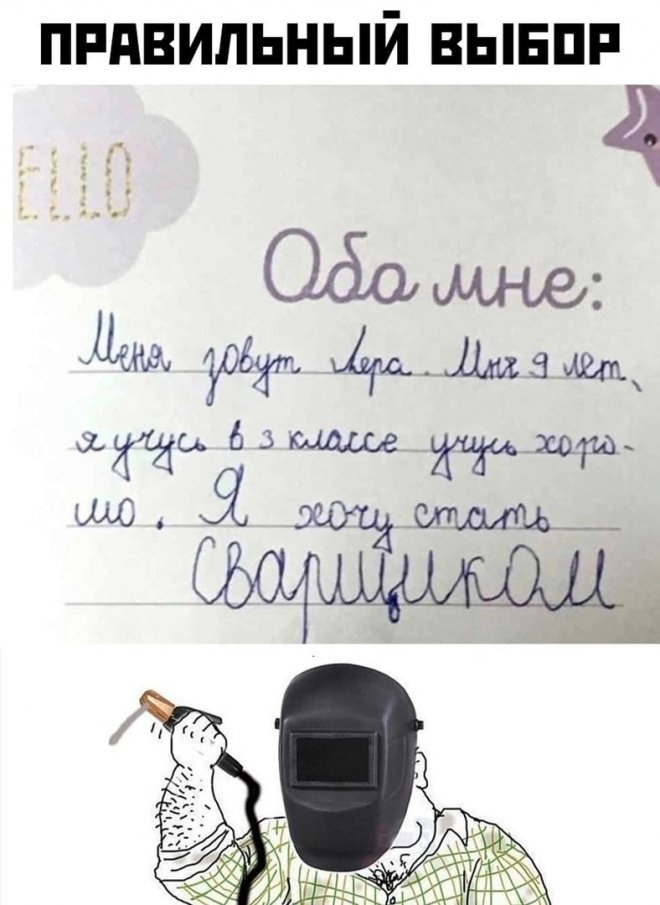 ПРАВИЛЬНЫЙ ВЫБОР
ELLO
Обо мне:
Меня зовут Лера. Мне 9 лет,
я учусь в 3 классе учусь хоро-
шо. Я хочу стать
Сварщиком